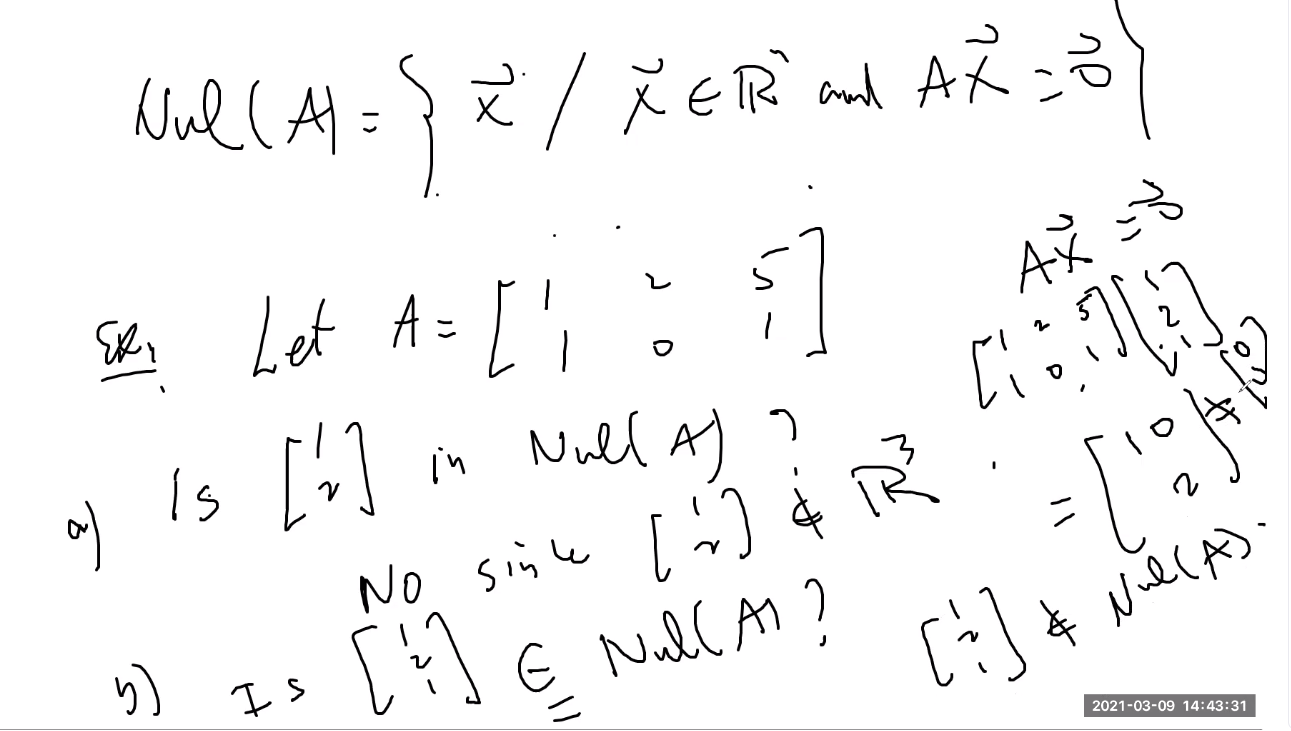 Nul(A) = { x⃗ / x⃗ ∈ ℝⁿ and Ax⃗ = 0⃗ }
Ex, Let A = [1 2 5; 1 0 1]
a) Is [1; 2] in Nul(A) ?
No since [1; 2] ∉ ℝ³
b) Is [1; 2; 1] ∈ Nul(A) ?
Ax⃗ = 0⃗
[1 2 5; 1 0 1] [1; 2; 1]
= [10; 2] ≠ [0; 0]
[1; 2; 1] ∉ Nul(A).
2021-03-09 14:43:31